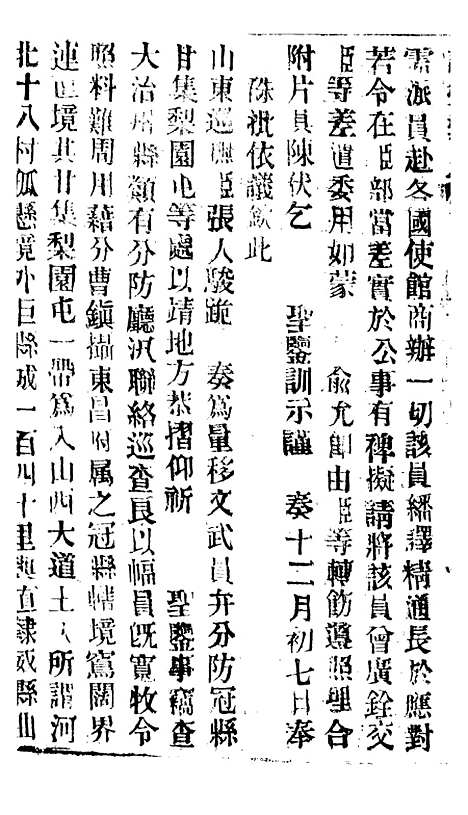 需派員赴各國使館商辦一切該員繙譯精通長於應對
若令在臣部當差實於公事有裨擬請將該員曾廣銓交
臣等差遣委用如蒙 俞允卽由臣等轉飭遵照理合
附片具陳伏乞 聖鑒訓示謹 奏十二月初七日奉
硃批依議欽此
山東巡撫臣張人駿跪 奏爲量移文武員弁分防冠縣
甘集梨園屯等處以靖地方恭摺仰祈 聖鑒事竊查
大治州縣類有分防廳汛聯絡巡查良以幅員旣寬牧令
照料難周用藉分曹鎭攝東昌府属之冠縣轄境寬闊界
連 境其甘集梨園屯一帶爲入山西大道土人所謂河
北十八村孤懸境外距縣城一百四十里與直隸威縣